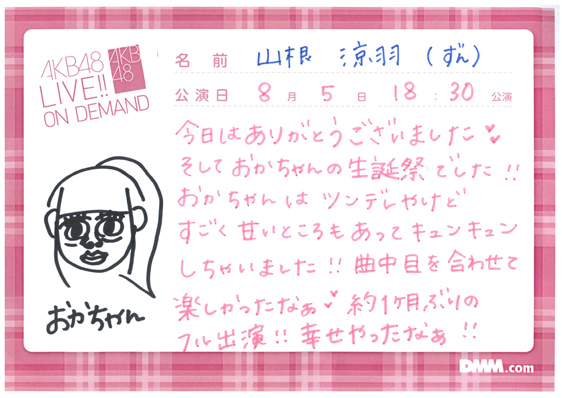 AKB48
LIVE!!
ON DEMAND
AKB
48
名前 山根 涼羽 (ずん)
公演日 8月5日 18:30公演
今日はありがとうございました♥♥
そしておかちゃんの生誕祭でした!!
おかちゃんはツンデレやけど
すごく甘いところもあってキュンキュン
しちゃいました!! 曲中目を合わせて
楽しかったなぁ♥ 約1ヶ月ぶりの
フル出演!! 幸せやったなぁ!!
おかちゃん
DMM.com